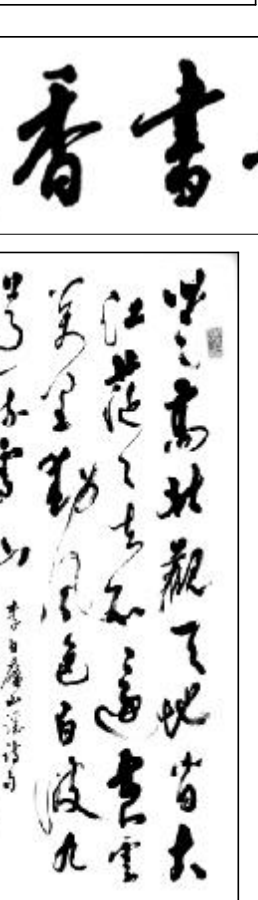 書香
登高壯觀天地間大
江茫茫去不還黃雲
萬里動風色百波九
道流雪山
李白廬山謠詩句